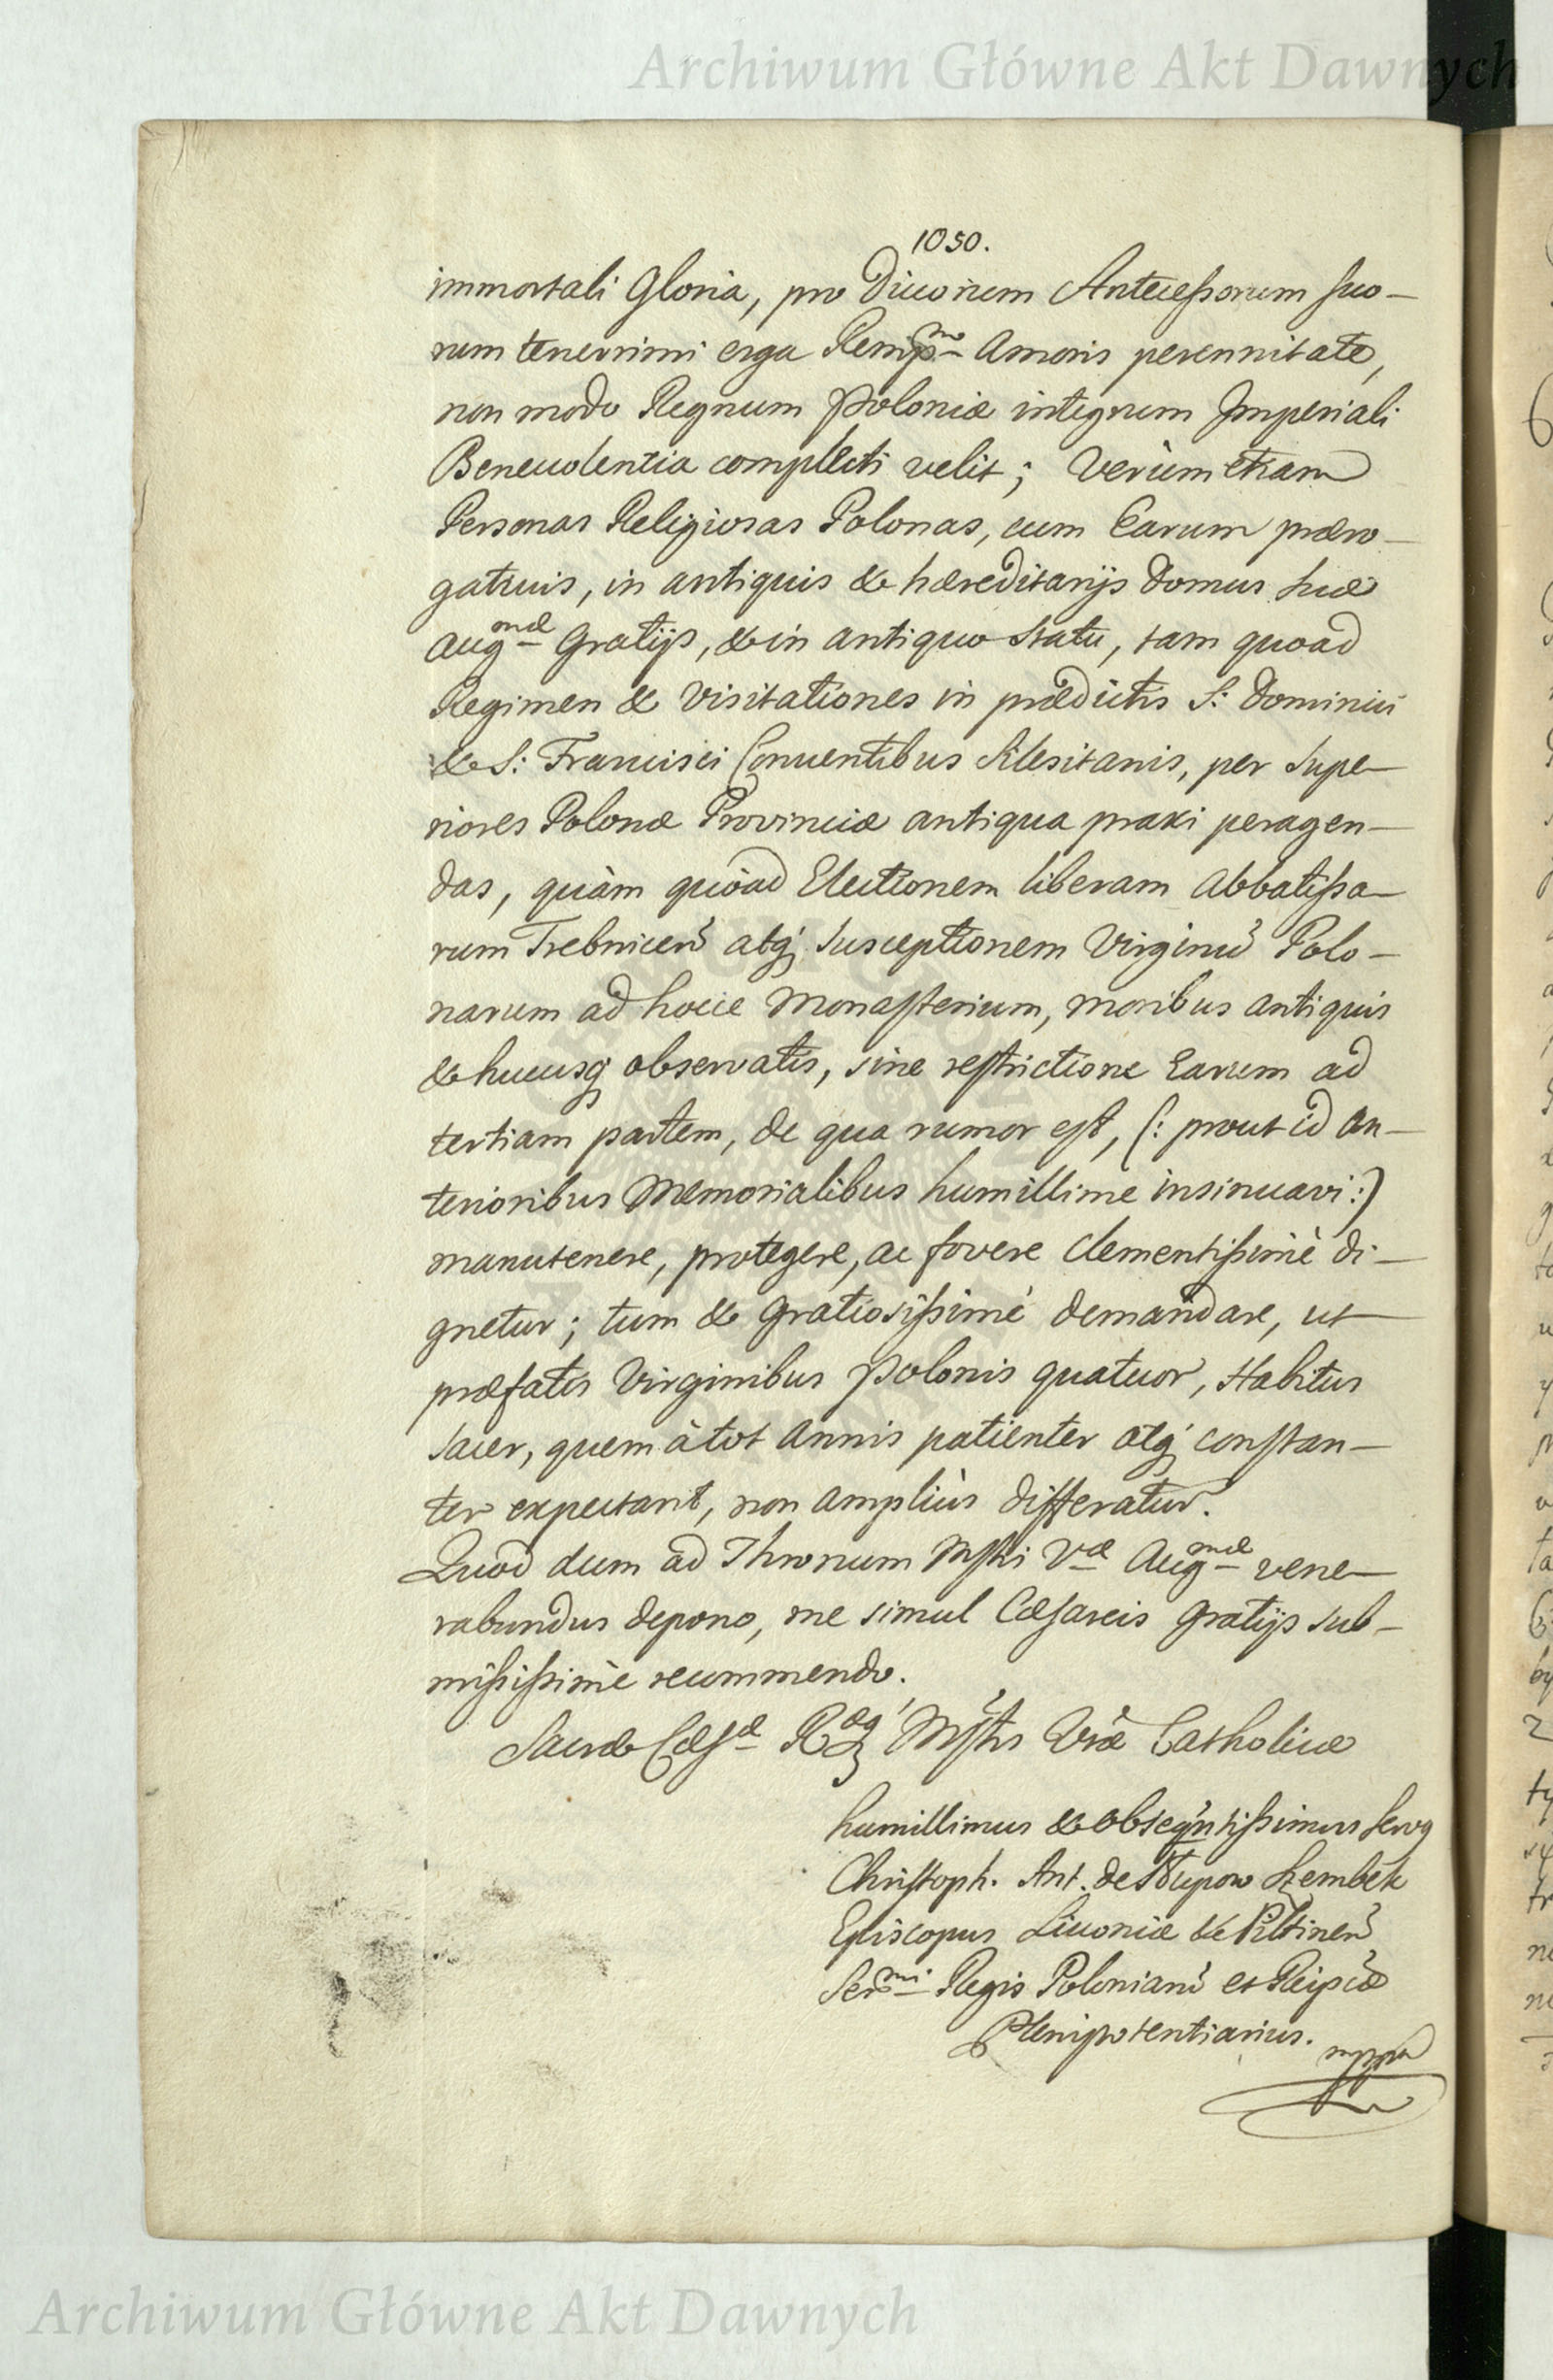 Archiwum Główne Akt Dawnych
1050.
immortali Gloria, pro Divorum Antecessorum suo-
rum tenerrimi erga Rempm Amoris perennitate,
non modo Regnum Poloniæ integrum Imperiali
Benevolentia complecti velit; Verùm etiam
Personas Religiosas Polonas, cum Earum præro-
gativis, in antiquis & hæreditarijs Domus suæ
Augmæ Gratijs, & in antiquo statu, tam quoad
Regimen & Visitationes in prædictis S: Dominici
& S: Francisci Conventibus Silesitanis, per Supe-
riores Polonæ Provinciæ antiqua praxi peragen-
das, quàm quòad Electionem liberam Abbatissa-
rum Trebnicen̄ atq; susceptionem Virginū Polo-
narum ad hocce Monasterium, moribus antiquis
& hucusq; observatis, sine restrictione Earum ad
tertiam partem, de qua rumor est, (: prout id an-
terioribus Memorialibus humillime insinuavi:)
manutenere, protegere, ac fovere clementissimè di-
gnetur; tum & gratiosissimè demandare, ut
præfatis Virginibus Polonis quatuor, Habitus
sacer, quem à tot annis patienter atq; constan-
ter expectant, non ampliùs differatur.
Quod dum ad Thronum Mstti Væ Augmæ vene-
rabundus depono, me simul Cæsareis gratijs sub-
missìssimè recommendo.
Sacræ Cæsæ Ræq; Msttis Vræ Catholicæ
humillimus & obseqntissimus Servq
Christoph. Ant. de Słupow Szembek
Episcopus Livoniæ & Piltinen̄
Sermi Regis Poloniarū et Reipcæ
Plenipotentiarius. mppa
Archiwum Główne Akt Dawnych